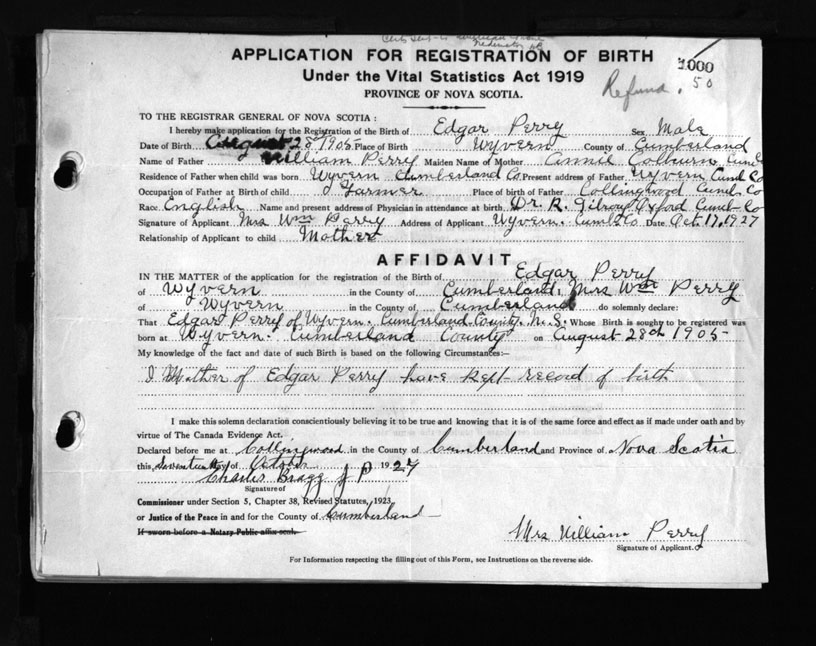 APPLICATION FOR REGISTRATION OF BIRTH
1000
Under the Vital Statistics Act 1919
Refund .50
PROVINCE OF NOVA SCOTIA.
TO THE REGISTRAR GENERAL OF NOVA SCOTIA:
I hereby make application for the Registration of the Birth of Edgar Perry Sex Male
Date of Birth August 28 1905 Place of Birth Wyvern County of Cumberland
Name of Father William Perry Maiden Name of Mother Annie Colburn
Residence of Father when child was born Wyvern Cumberland Co Present address of Father Wyvern Cumb Co
Occupation of Father at Birth of child Farmer Place of birth of Father Collingwood Cumb. Co
Race English Name and present address of Physician in attendance at birth Dr. R. Gilroy Oxford Cumb Co
Signature of Applicant Mrs Wm Perry Address of Applicant Wyvern. Cumb Co Date Oct. 17, 1927
Relationship of Applicant to child Mother
AFFIDAVIT
IN THE MATTER of the application for the registration of the Birth of Edgar Perry
of Wyvern in the County of Cumberland, Mrs Wm Perry
of Wyvern in the County of Cumberland do solemnly declare:
That Edgar Perry of Wyvern. Cumberland County. N.S. Whose Birth is sought to be registered was
born at Wyvern. Cumberland County on August 28th 1905
My knowledge of the fact and date of such Birth is based on the following Circumstances:—
I Mother of Edgar Perry have kept record of birth
I make this solemn declaration conscientiously believing it to be true and knowing that it is of the same force and effect as if made under oath and by
virtue of The Canada Evidence Act.
Declared before me at Collingwood in the County of Cumberland and Province of Nova Scotia
this Seventeenth day of October 1927
Charles Bragg J P
Signature of
Commissioner under Section 5, Chapter 38, Revised Statutes, 1923,
or Justice of the Peace in and for the County of Cumberland
If sworn before a Notary Public affix seal.
Mrs William Perry
Signature of Applicant.
For Information respecting the filling out of this Form, see Instructions on the reverse side.